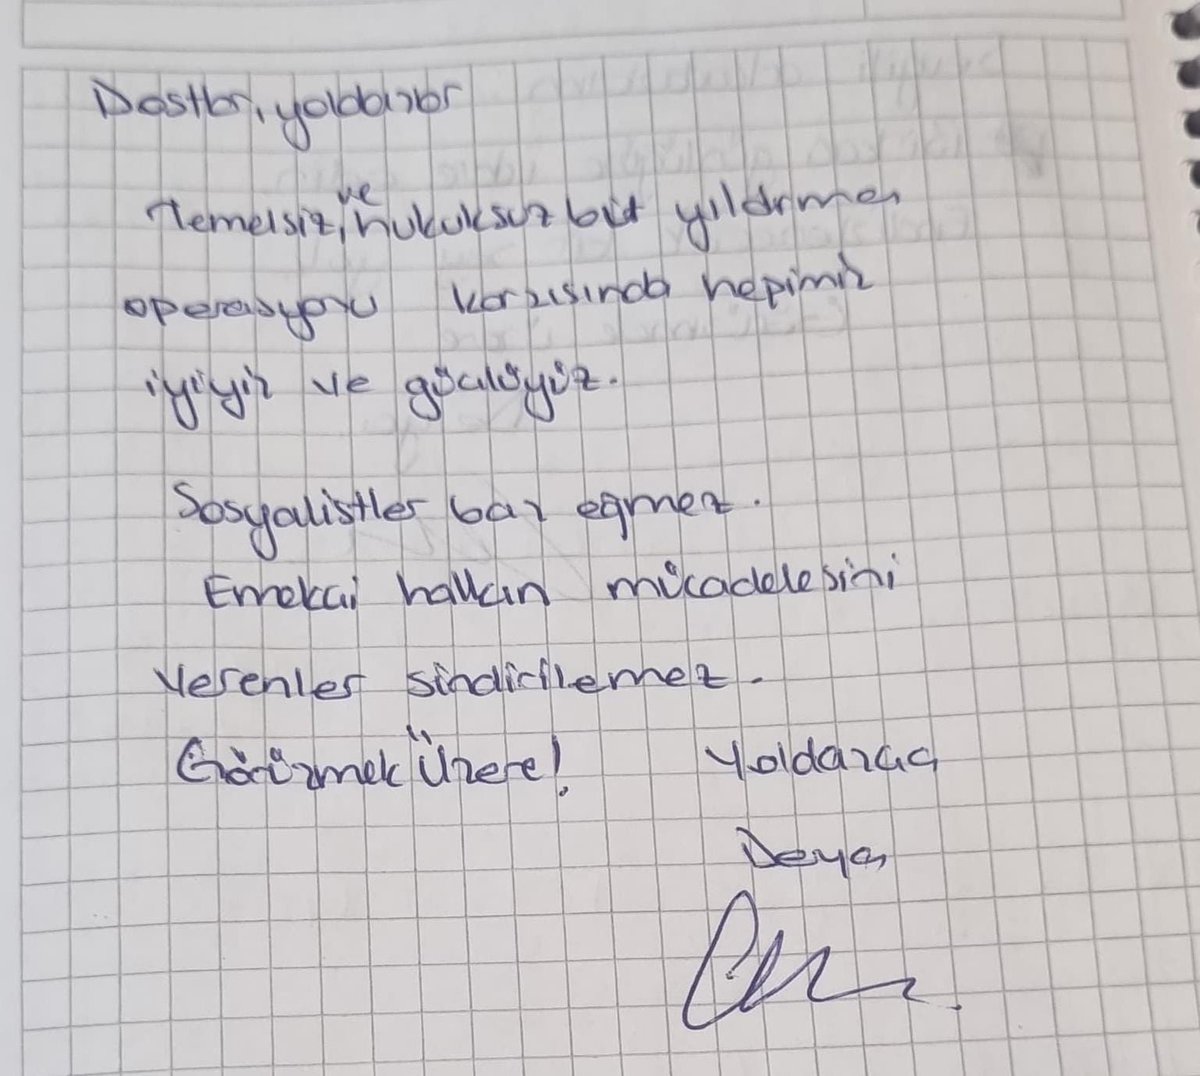 Dostlar, yoldaşlar
Temelsiz, ve hukuksuz bir yıldırma
operasyonu karşısında hepimiz
iyiyiz ve güçlüyüz.
Sosyalistler baş eğmez.
Emekçi halkın mücadelesini
verenler sindirilemez.
Görüşmek Üzere! Yoldaşça